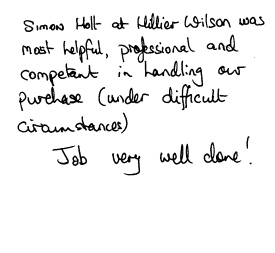 Simon Holt at Hillier Wilson was
most helpful, professional and
competent in handling our
purchase (under difficult
circumstances)
Job very well done!